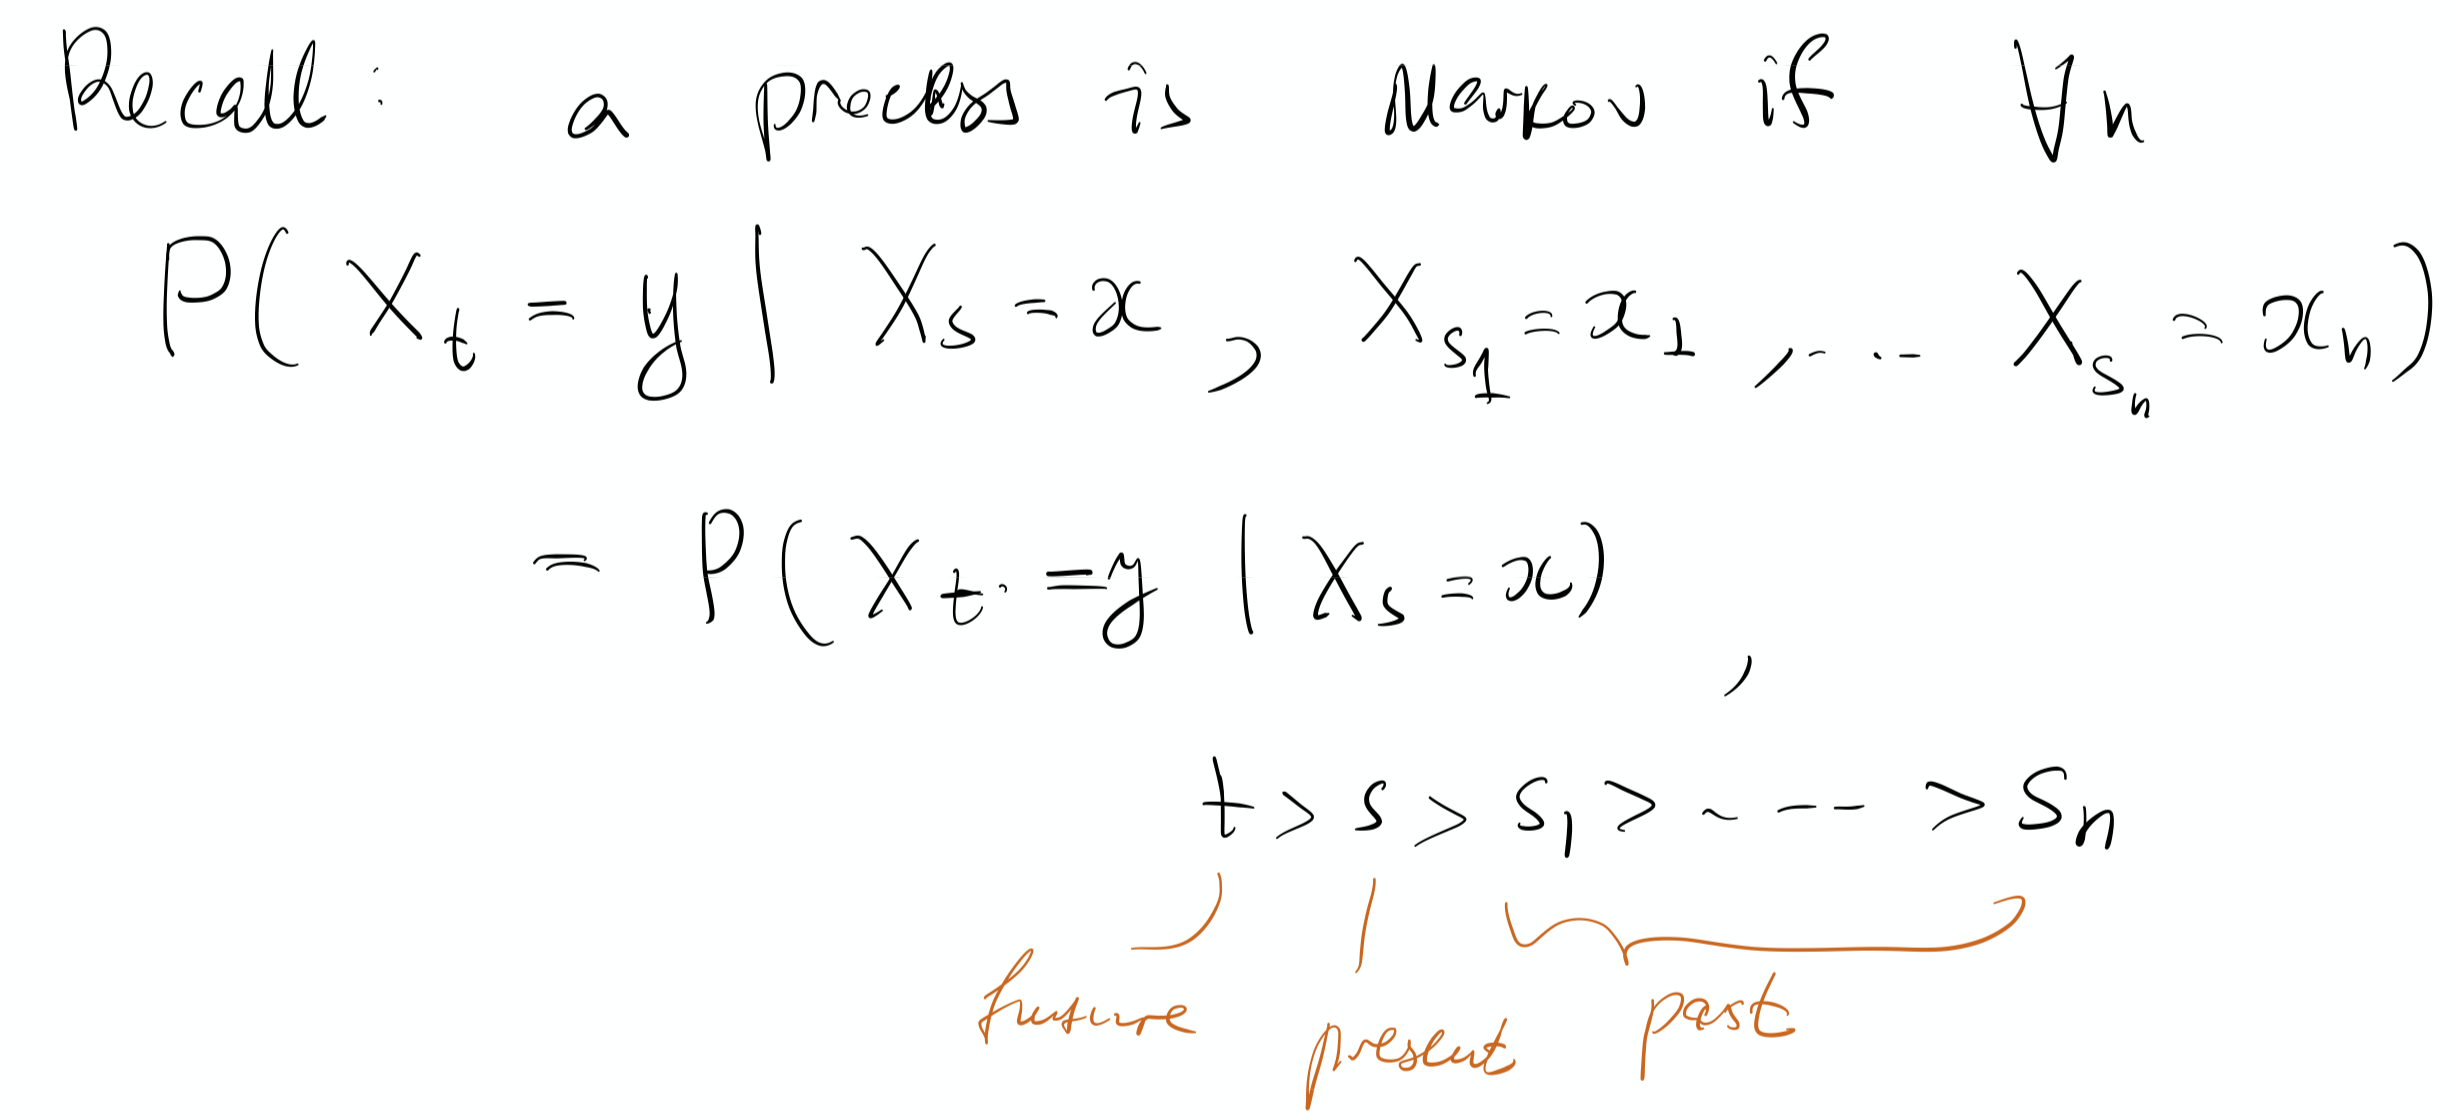 Recall: a process is Markov if ∀n
P( X_t = y | X_s = x , X_{s_1} = x_1 , ... X_{s_n} = x_n )
= P( X_t = y | X_s = x ) ,
t > s > s_1 > ---- > s_n
future present past